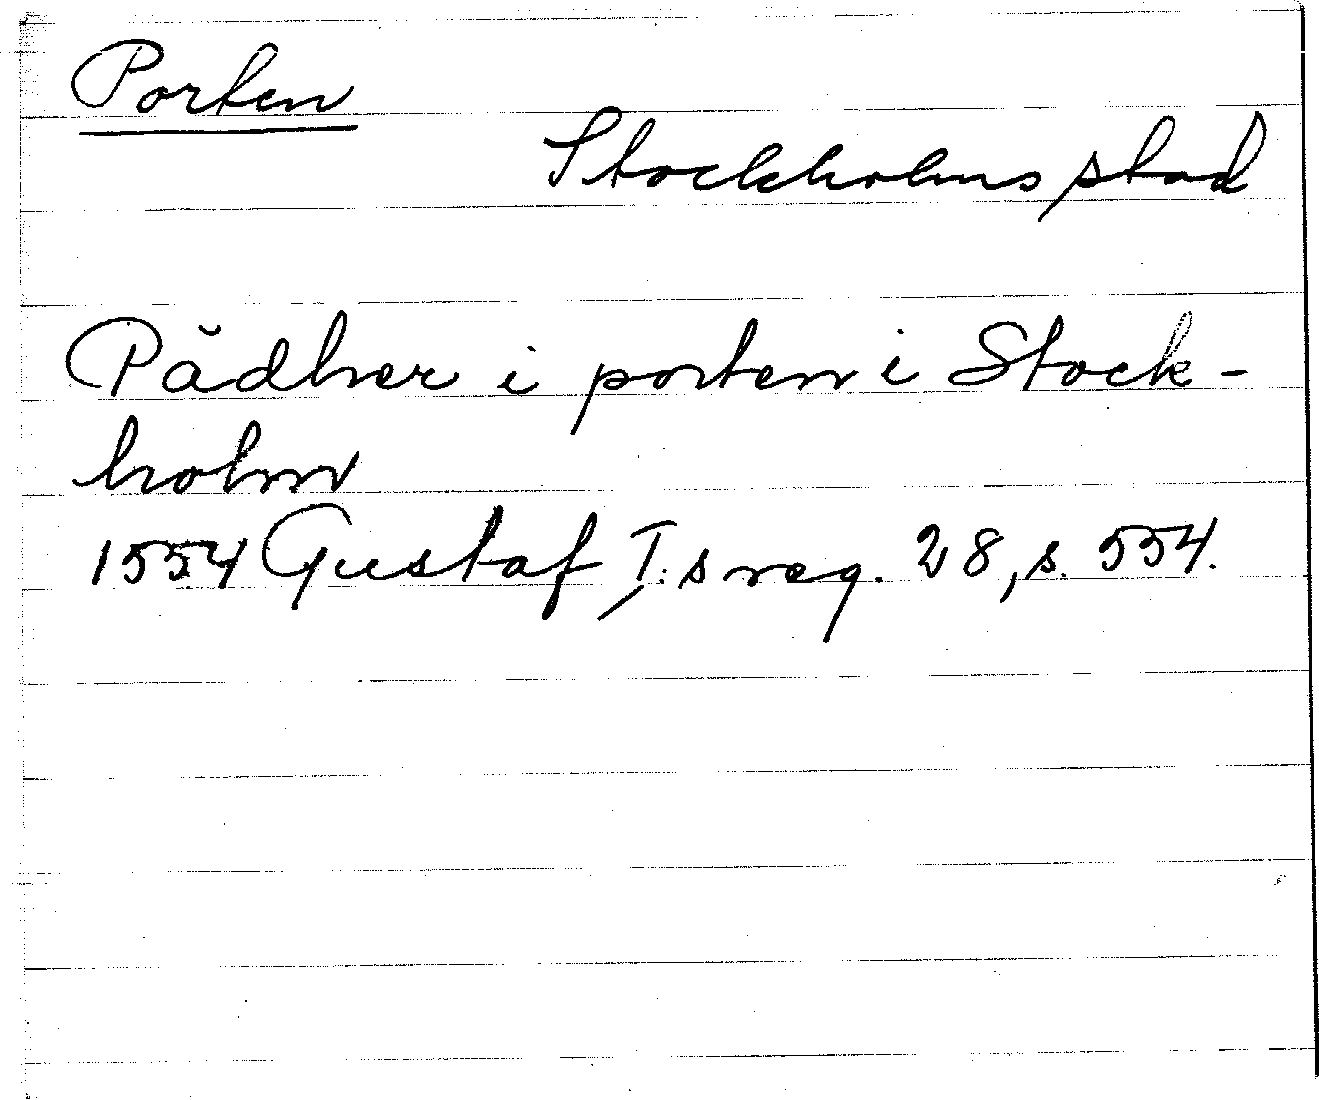 Porten
Stockholms stad
Pådher i porten i Stock-
holm
1554 Gustaf I:s reg. 28, s. 554.